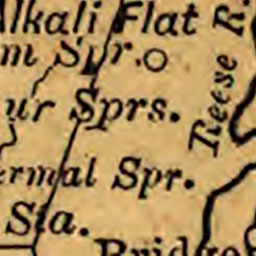 Alkali Flat
m Spr.
ur Sprs.
ermal Spr.
Sta.
Reese R.
Bridge